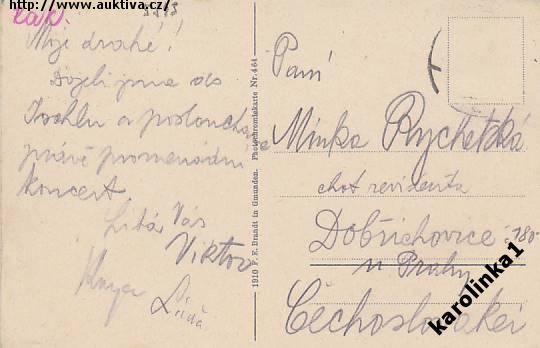 http://www.auktiva.cz/
Moje drahé!
Dojeli jsme do
Ischlu a posloucháme
právě promenádní
koncert
Líbá Vás
Viktor
Líďa
1910 F. E. Brandt in Gmunden. Photochromiekarte Nr. 464
Paní
Minka Rychetská
choť revidenta
Dobřichovice -180-
u Prahy
Čechoslovakei
karolinka1